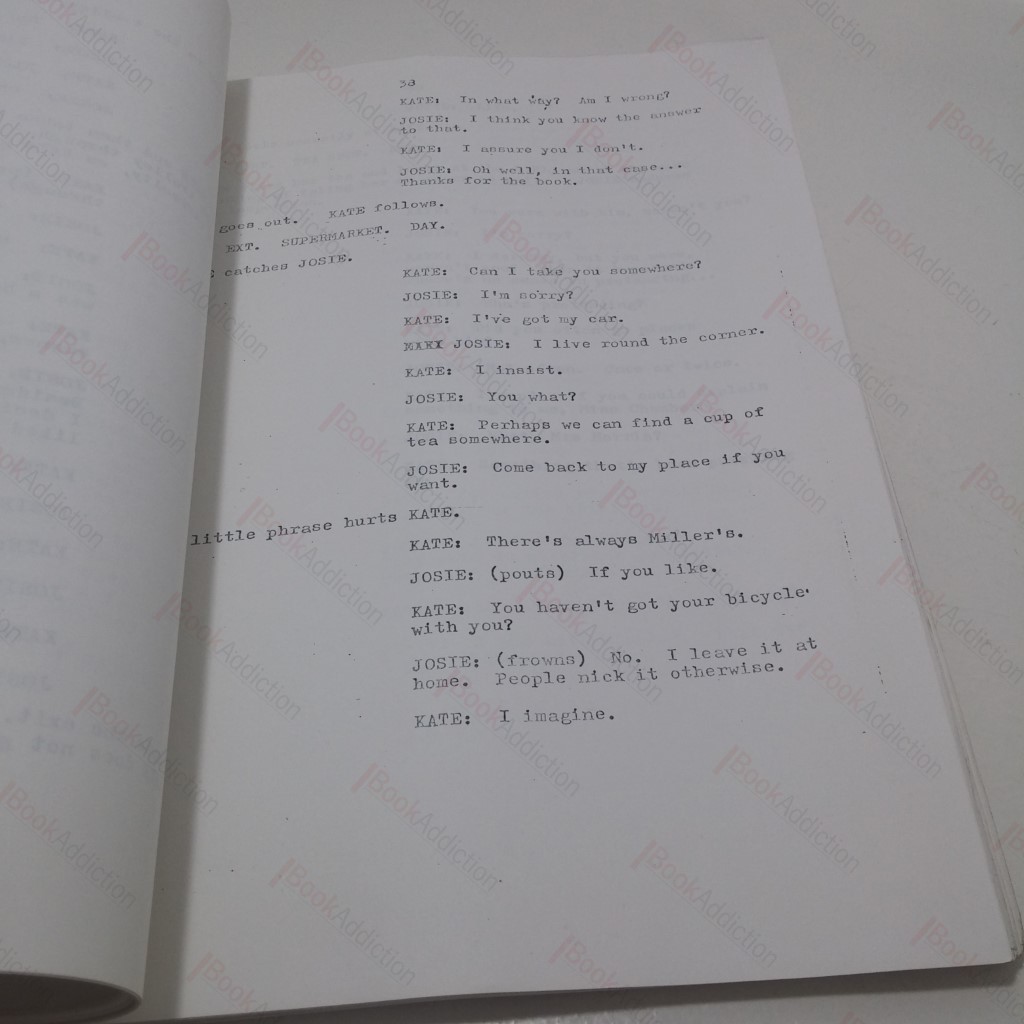 38
KATE: In what way? Am I wrong?
JOSIE: I think you know the answer
to that.
KATE: I assure you I don't.
JOSIE: Oh well, in that case...
Thanks for the book.
goes out. KATE follows.
EXT. SUPERMARKET. DAY.
catches JOSIE.
KATE: Can I take you somewhere?
JOSIE: I'm sorry?
KATE: I've got my car.
JOSIE: I live round the corner.
KATE: I insist.
JOSIE: You what?
KATE: Perhaps we can find a cup of
tea somewhere.
JOSIE: Come back to my place if you
want.
little phrase hurts KATE.
KATE: There's always Miller's.
JOSIE: (pouts) If you like.
KATE: You haven't got your bicycle
with you?
JOSIE: (frowns) No. I leave it at
home. People nick it otherwise.
KATE: I imagine.
BookAddiction